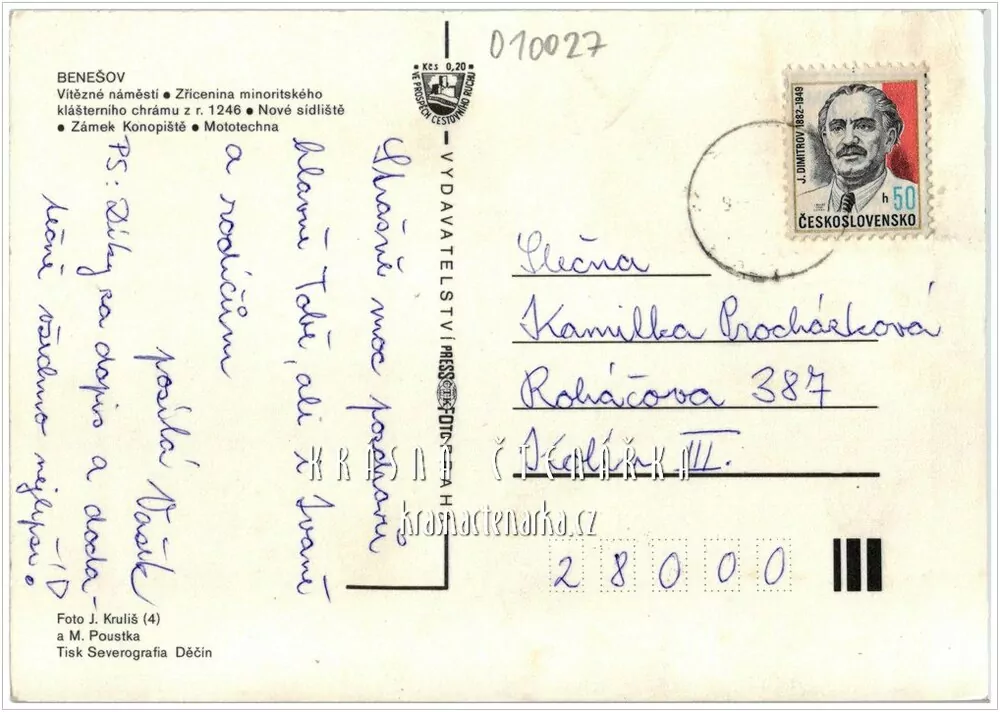 010027
BENEŠOV
Vítězné náměstí ● Zřícenina minoritského
klášterního chrámu z r. 1246 ● Nové sídliště
● Zámek Konopiště ● Mototechna
Kčs 0,20
VE PROSPĚCH CESTOVNÍHO RUCHU
J. DIMITROV 1882-1949
h 50
ČESKOSLOVENSKO
Strašně moc pozdravů
hlavně Tobě, ale i Ivaně
a rodičům
posílá Vašík
PS: Díky za dopis a doda-
tečně všechno nejlepší
VYDAVATELSTVÍ PRESSFOTO PRAHA
ČTK
Slečna
Kamilka Procházková
Roháčova 387
Kolín III.
KRÁSNÁ ČTENÁŘKA
krasnactenarka.cz
28000
Foto J. Kruliš (4)
a M. Poustka
Tisk Severografia Děčín